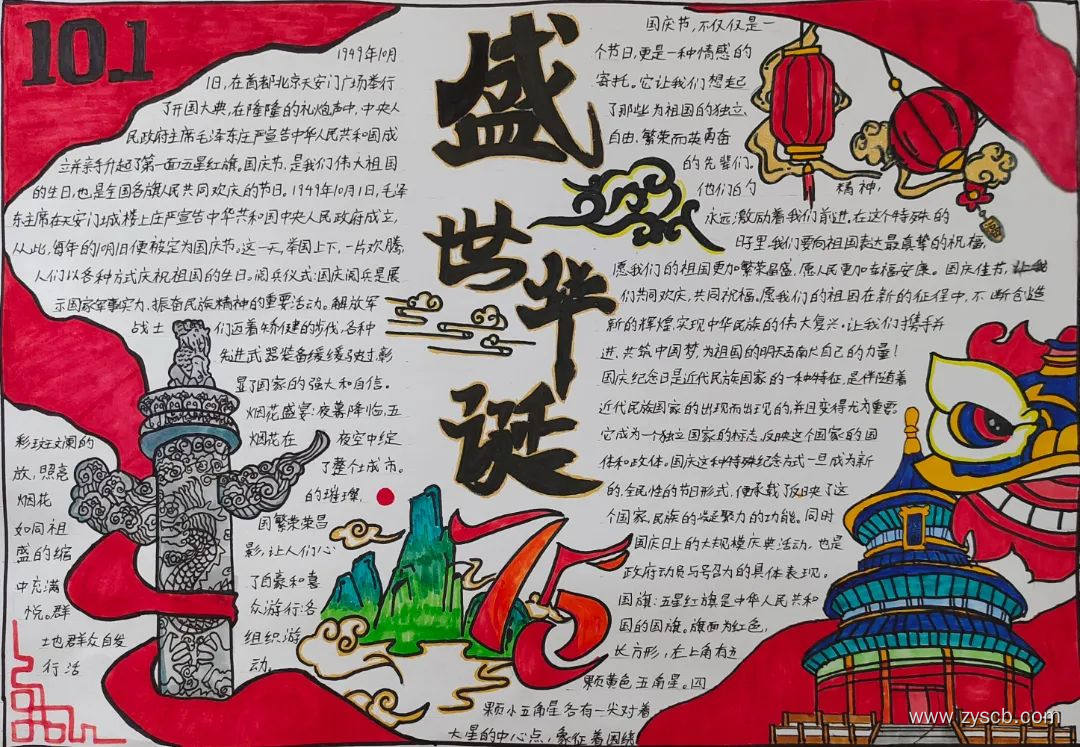 10.1
盛世华诞
75
1949年10月
1日,在首都北京天安门广场举行
了开国大典,在隆隆的礼炮声中,中央人
民政府主席毛泽东庄严宣告中华人民共和国成
立并亲手升起了第一面五星红旗。国庆节,是我们伟大祖国
的生日,也是全国各族人民共同欢庆的节日。1949年10月1日,毛泽
东主席在天安门城楼上庄严宣告中华共和国中央人民政府成立,
从此,每年的10月1日便被定为国庆节。这一天,举国上下,一片欢腾,
人们以各种方式庆祝祖国的生日。阅兵仪式:国庆阅兵是展
示国家军事实力、振奋民族精神的重要活动。解放军
战士 们迈着矫健的步伐,各种
先进武器装备缓缓驶过,彰
显了国家的强大和自信。
烟花盛宴:夜幕降临,五
彩斑斓的 烟花在 夜空中绽
放,照亮 了整个城市。
烟花 的璀璨
如同祖 国繁荣荣昌
盛的缩 影,让人们心
中充满 了自豪和喜
悦。群 众游行:各
地群众自发 组织游
行活 动。
国庆节,不仅仅是一
个节日,更是一种情感的
寄托。它让我们想起
了那些为祖国的独立、
自由、繁荣而英勇奋
的先辈们。
他们的 精神,
永远激励着我们前进,在这个特殊的
日子里,我们要向祖国表达最真挚的祝福,
愿我们的祖国更加繁荣昌盛,愿人民更加幸福安康。国庆佳节,让我
们共同欢庆,共同祝福,愿我们的祖国在新的征程中,不断创造
新的辉煌,实现中华民族的伟大复兴。让我们携手并
进,共筑中国梦,为祖国的明天贡献自己的力量!
国庆纪念日是近代民族国家的一种特征,是伴随着
近代民族国家的出现而出现的,并且变得尤为重要。
它成为一个独立国家的标志,反映这个国家的国
体和政体。国庆这种特殊纪念方式一旦成为新
的、全民性的节日形式,便承载了反映了这
个国家、民族的凝聚力的功能。同时
国庆日上的大规模庆典活动,也是
政府动员与号召力的具体表现。
国旗:五星红旗是中华人民共和
国的国旗。旗面为红色,
长方形,左上角有五
颗黄色五角星。四
颗小五角星各有一尖对着
大星的中心点,象征着围绕
www.zyscb.com